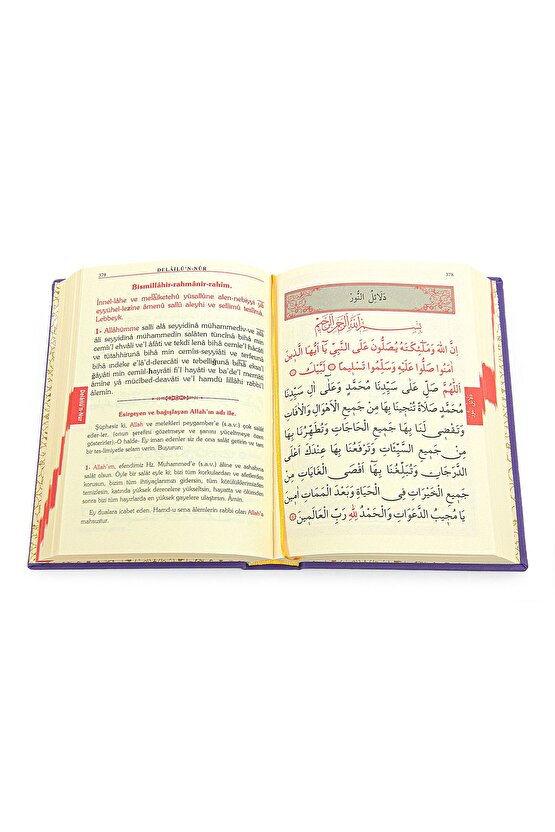 379
DELÂİLÜ'N-NÛR
Bismillâhir-rahmânir-rahîm.
İnnel-lâhe ve melâiketehû yüsallûne alen-nebiyyi yâ
eyyühel-lezîne âmenû sallû aleyhi ve sellimû teslîmâ.
Lebbeyk.
1- Allâhümme salli alâ seyyidinâ muhammediv-ve alâ
âli seyyidinâ muhammedin salâten tüncînâ bihâ min
cemîi'l ehvâli ve'l âfât ve tekdî lenâ bihâ cemîe'l hâcâti
ve tütahhirunâ bihâ min cemîıs-seyyiâti ve terfeunâ
bihâ ındeke e'lâ'd-derecâti ve tebelliğunâ bihâ eksa'l
ğâyâti min cemîil-hayrâti fi'l hayâti ve ba'de'l memâti
âmîne yâ mücîbed-deavâti ve'l hamdü lillâhi rabbi'l
âlemîn.
Esirgeyen ve bağışlayan Allah'ın adı ile.
Şüphesiz ki, Allah ve melekleri peygamber'e (s.a.v.) çok salât
eder-ler. (onun şerefini gözetmeye ve şanını yüceltmeye özen
gösterirler).O halde- Ey iman edenler siz de ona salât getirin ve tam
bir tes-limiyetle selam verin. Buyurun:
1- Allah'ım, efendimiz Hz. Muhammed'e (s.a.v.) âline ve ashabına
salât olsun. Öyle bir salât eyle ki; bizi tüm korkulardan ve afetlerden
korusun, bizim tüm ihtiyaçlarımızı gidersin, tüm kötülüklerimizden
temizlesin, katında yüksek derecelere yükseltsin, hayatta ve ölümden
sonra bizi tüm hayırlarda en yüksek gayelere ulaştırsın. Âmin.
Ey dualara icabet eden. Hamd-u sena âlemlerin rabbi olan Allah'a
mahsustur.
Delâilü'n-Nûr
378
دَلَائِلُ النُّورْ
بِسْمِ اللّٰهِ الرَّحْمٰنِ الرَّحِيمِ
اِنَّ اللّٰهَ وَمَلٰٓئِكَتَهُ يُصَلُّونَ عَلَى النَّبِيِّ يَٓا اَيُّهَا الَّذِينَ
اٰمَنُوا صَلُّوا عَلَيْهِ وَسَلِّمُوا تَسْلِيمًا ۞ لَبَّيْكَ ۞
اَللّٰهُمَّ صَلِّ عَلٰى سَيِّدِنَا مُحَمَّدٍ وَعَلٰٓى اٰلِ سَيِّدِنَا
مُحَمَّدٍ صَلَاةً تُنْجِينَا بِهَا مِنْ جَمِيعِ الْاَهْوَالِ وَالْاٰفَاتِ
وَتَقْضِي لَنَا بِهَا جَمِيعَ الْحَاجَاتِ وَتُطَهِّرُنَا بِهَا
مِنْ جَمِيعِ السَّيِّئَاتِ وَتَرْفَعُنَا بِهَا عِنْدَكَ اَعْلَى
الدَّرَجَاتِ وَتُبَلِّغُنَا بِهَٓا اَقْصَى الْغَايَاتِ مِنْ
جَمِيعِ الْخَيْرَاتِ فِي الْحَيَاةِ وَبَعْدَ الْمَمَاتِ اٰمِينَ
يَا مُجِيبَ الدَّعَوَاتِ وَالْحَمْدُ لِلّٰهِ رَبِّ الْعَالَمِينَ ۞